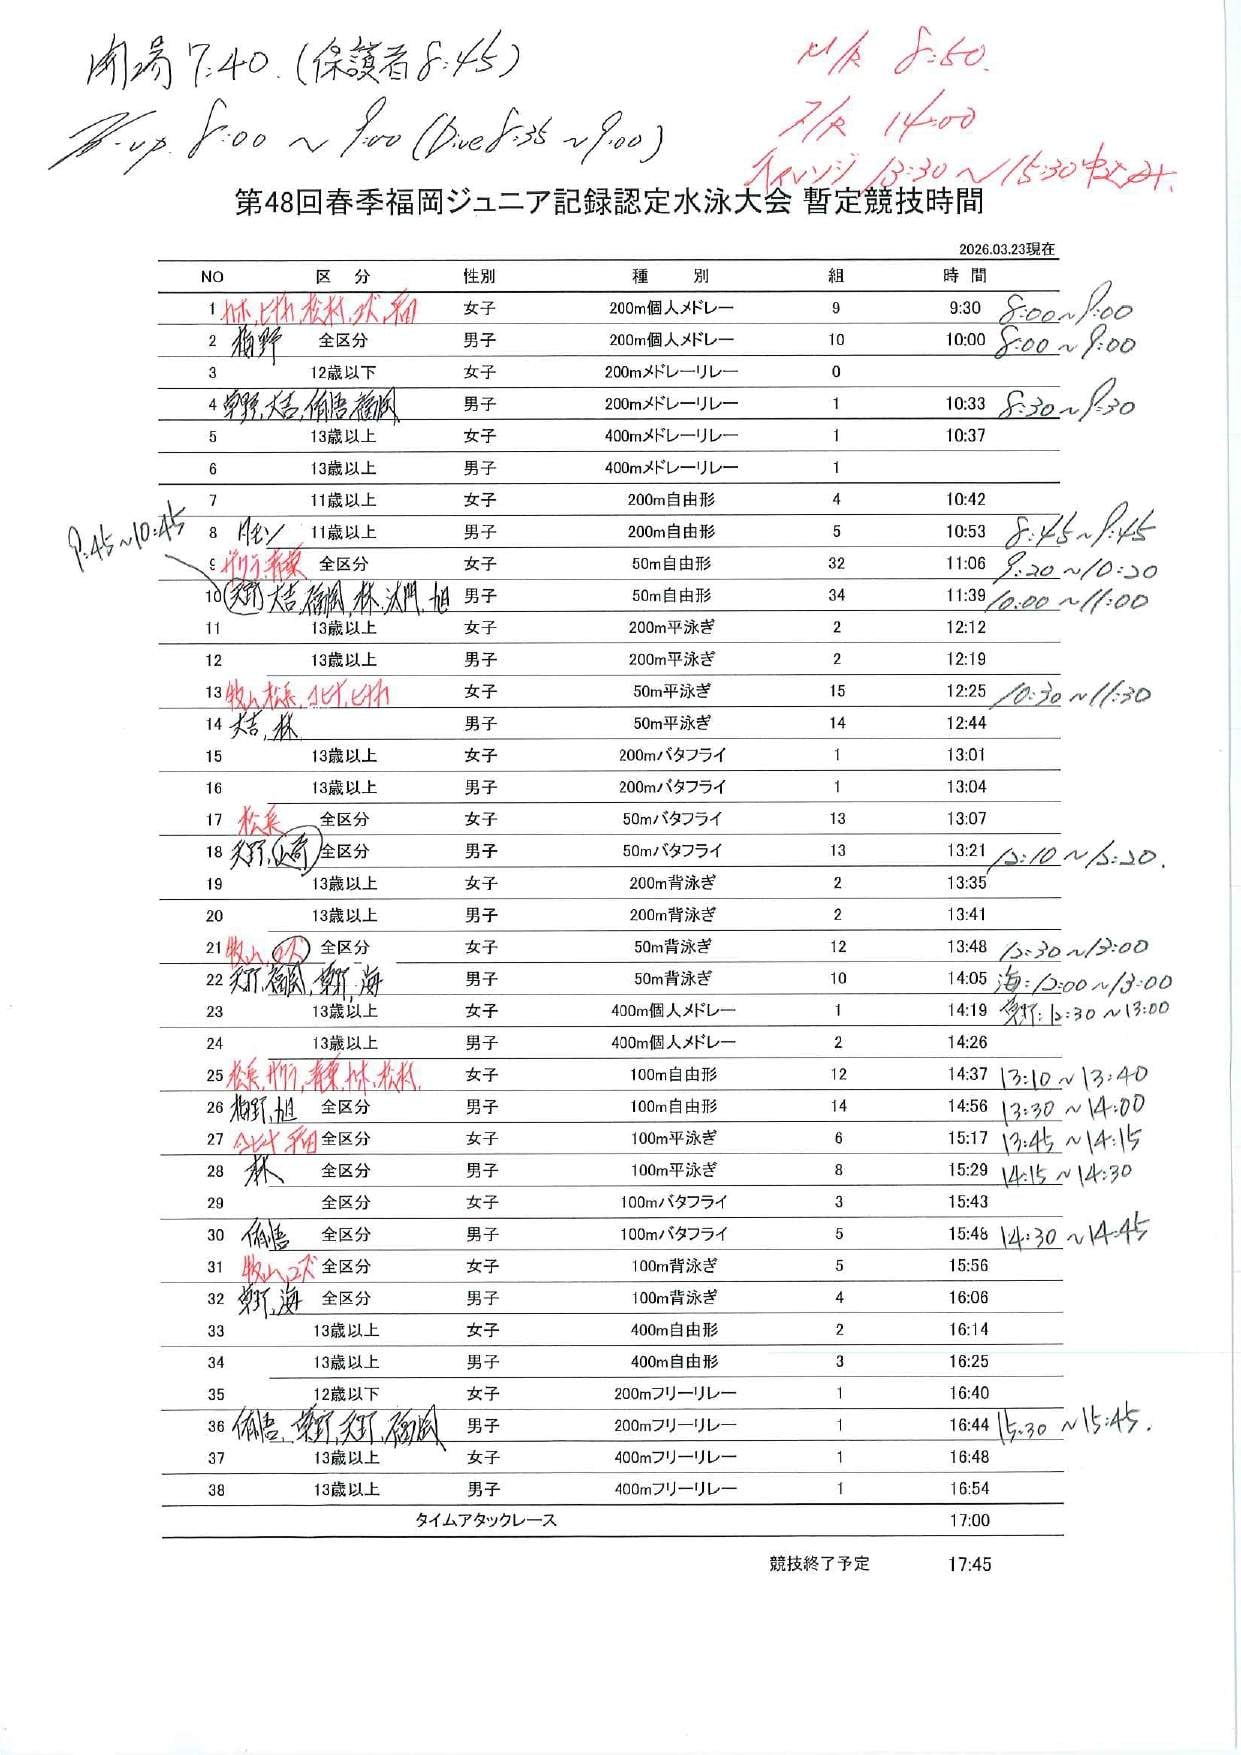 開場 7:40.(保護者 8:45)
W-up. 8:00 ~ 9:00 (Dive 8:35 ~ 9:00)
M/R 8:50.
F/R 14:00
チャレンジ 13:30 ~ 15:30
第48回春季福岡ジュニア記録認定水泳大会 暫定競技時間
2026.03.23現在
NO 区 分 性別 種 別 組 時 間
1 女子 200m個人メドレー 9 9:30 8:00~9:00
2 梅野 全区分 男子 200m個人メドレー 10 10:00 8:00~9:00
3 12歳以下 女子 200mメドレーリレー 0
4 草野,大吉,侑悟,福岡 男子 200mメドレーリレー 1 10:33 8:30~9:30
5 13歳以上 女子 400mメドレーリレー 1 10:37
6 13歳以上 男子 400mメドレーリレー 1
7 11歳以上 女子 200m自由形 4 10:42
8 11歳以上 男子 200m自由形 5 10:53 8:45~9:45
9:45~10:45
9 全区分 女子 50m自由形 32 11:06 9:20~10:20
10 天野 大吉,福岡,林,大門,旭 男子 50m自由形 34 11:39 10:00~11:00
11 13歳以上 女子 200m平泳ぎ 2 12:12
12 13歳以上 男子 200m平泳ぎ 2 12:19
13 牧山 女子 50m平泳ぎ 15 12:25 10:30~11:30
14 大吉,林 男子 50m平泳ぎ 14 12:44
15 13歳以上 女子 200mバタフライ 1 13:01
16 13歳以上 男子 200mバタフライ 1 13:04
17 全区分 女子 50mバタフライ 13 13:07
18 天野,山奇 全区分 男子 50mバタフライ 13 13:21
19 13歳以上 女子 200m背泳ぎ 2 13:35
20 13歳以上 男子 200m背泳ぎ 2 13:41
21 牧山, コズ 全区分 女子 50m背泳ぎ 12 13:48 12:30~13:00
22 天野,福岡,草野,海 男子 50m背泳ぎ 10 14:05 海:12:00~13:00
23 13歳以上 女子 400m個人メドレー 1 14:19 草野:12:30~13:00
24 13歳以上 男子 400m個人メドレー 2 14:26
25 女子 100m自由形 12 14:37 13:10~13:40
26 梅野,旭 全区分 男子 100m自由形 14 14:56 13:30~14:00
27 全区分 女子 100m平泳ぎ 6 15:17 13:45~14:15
28 林 全区分 男子 100m平泳ぎ 8 15:29 14:15~14:30
29 全区分 女子 100mバタフライ 3 15:43
30 侑悟 全区分 男子 100mバタフライ 5 15:48 14:30~14:45
31 牧山,コズ 全区分 女子 100m背泳ぎ 5 15:56
32 草野,海 全区分 男子 100m背泳ぎ 4 16:06
33 13歳以上 女子 400m自由形 2 16:14
34 13歳以上 男子 400m自由形 3 16:25
35 12歳以下 女子 200mフリーリレー 1 16:40
36 侑悟,草野,天野,福岡 男子 200mフリーリレー 1 16:44 15:30~15:45.
37 13歳以上 女子 400mフリーリレー 1 16:48
38 13歳以上 男子 400mフリーリレー 1 16:54
タイムアタックレース 17:00
競技終了予定 17:45